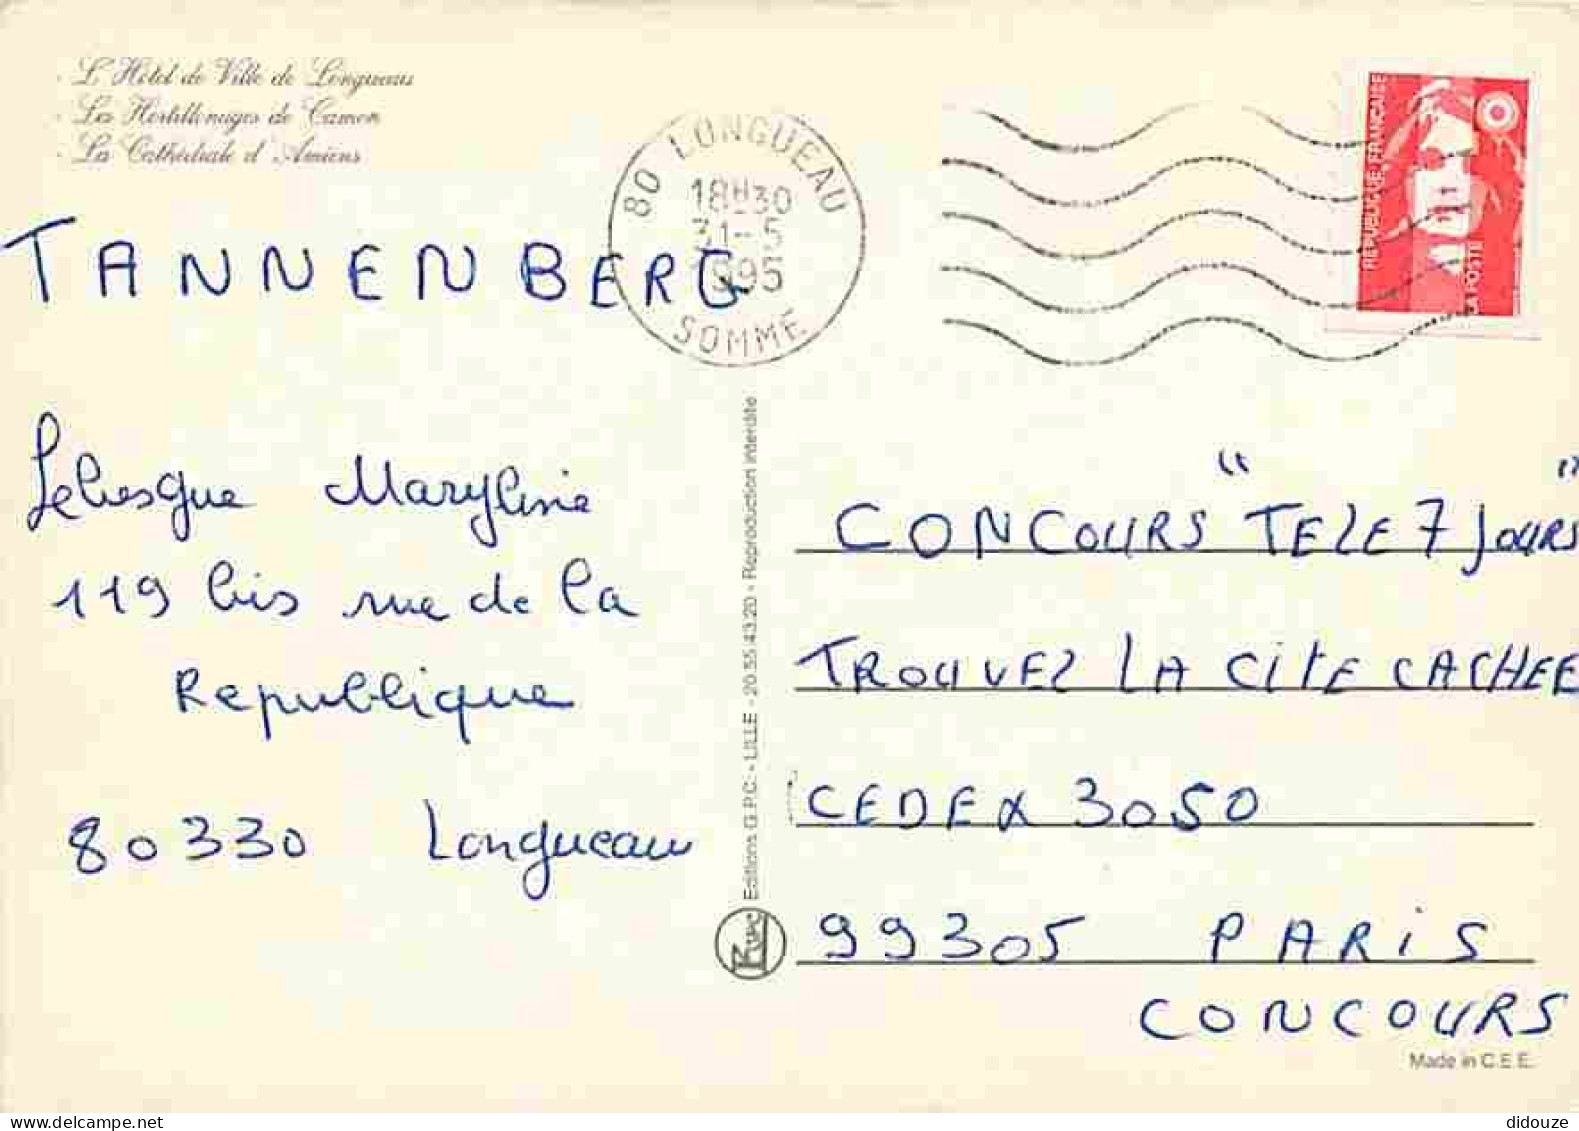 - L'Hôtel de Ville de Longueau
- Les Hortillonnages de Camon
- La Cathédrale d'Amiens
80 LONGUEAU
18H30
31-5
1995
SOMME
REPUBLIQUE FRANÇAISE
LA POSTE
TANNENBERG
Lebesgue Maryline
119 bis rue de la
Republique
80330 Longueau
Editions G.P.C. - LILLE - 20.55.43.20 - Reproduction interdite
CONCOURS "TELE 7 JOURS"
TROUVEZ LA CITE CACHEE
CEDEX 3050
99305 PARIS
CONCOURS
Made in C.E.E.
didouze
delcampe.net